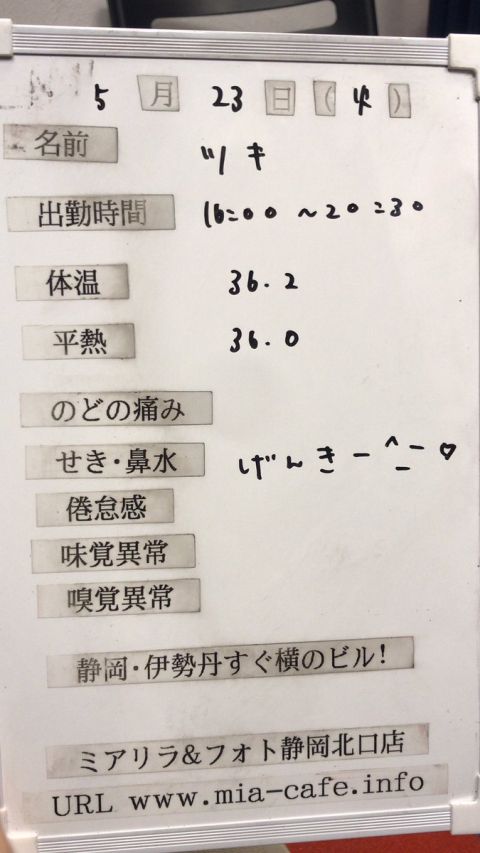 5月23日(火)
名前 ツキ
出勤時間 16:00 ~20:30
体温 36.2
平熱 36.0
のどの痛み
せき・鼻水 げんきー^_-♡
倦怠感
味覚異常
嗅覚異常
静岡・伊勢丹すぐ横のビル!
ミアリラ&フォト静岡北口店
URL www.mia-cafe.info